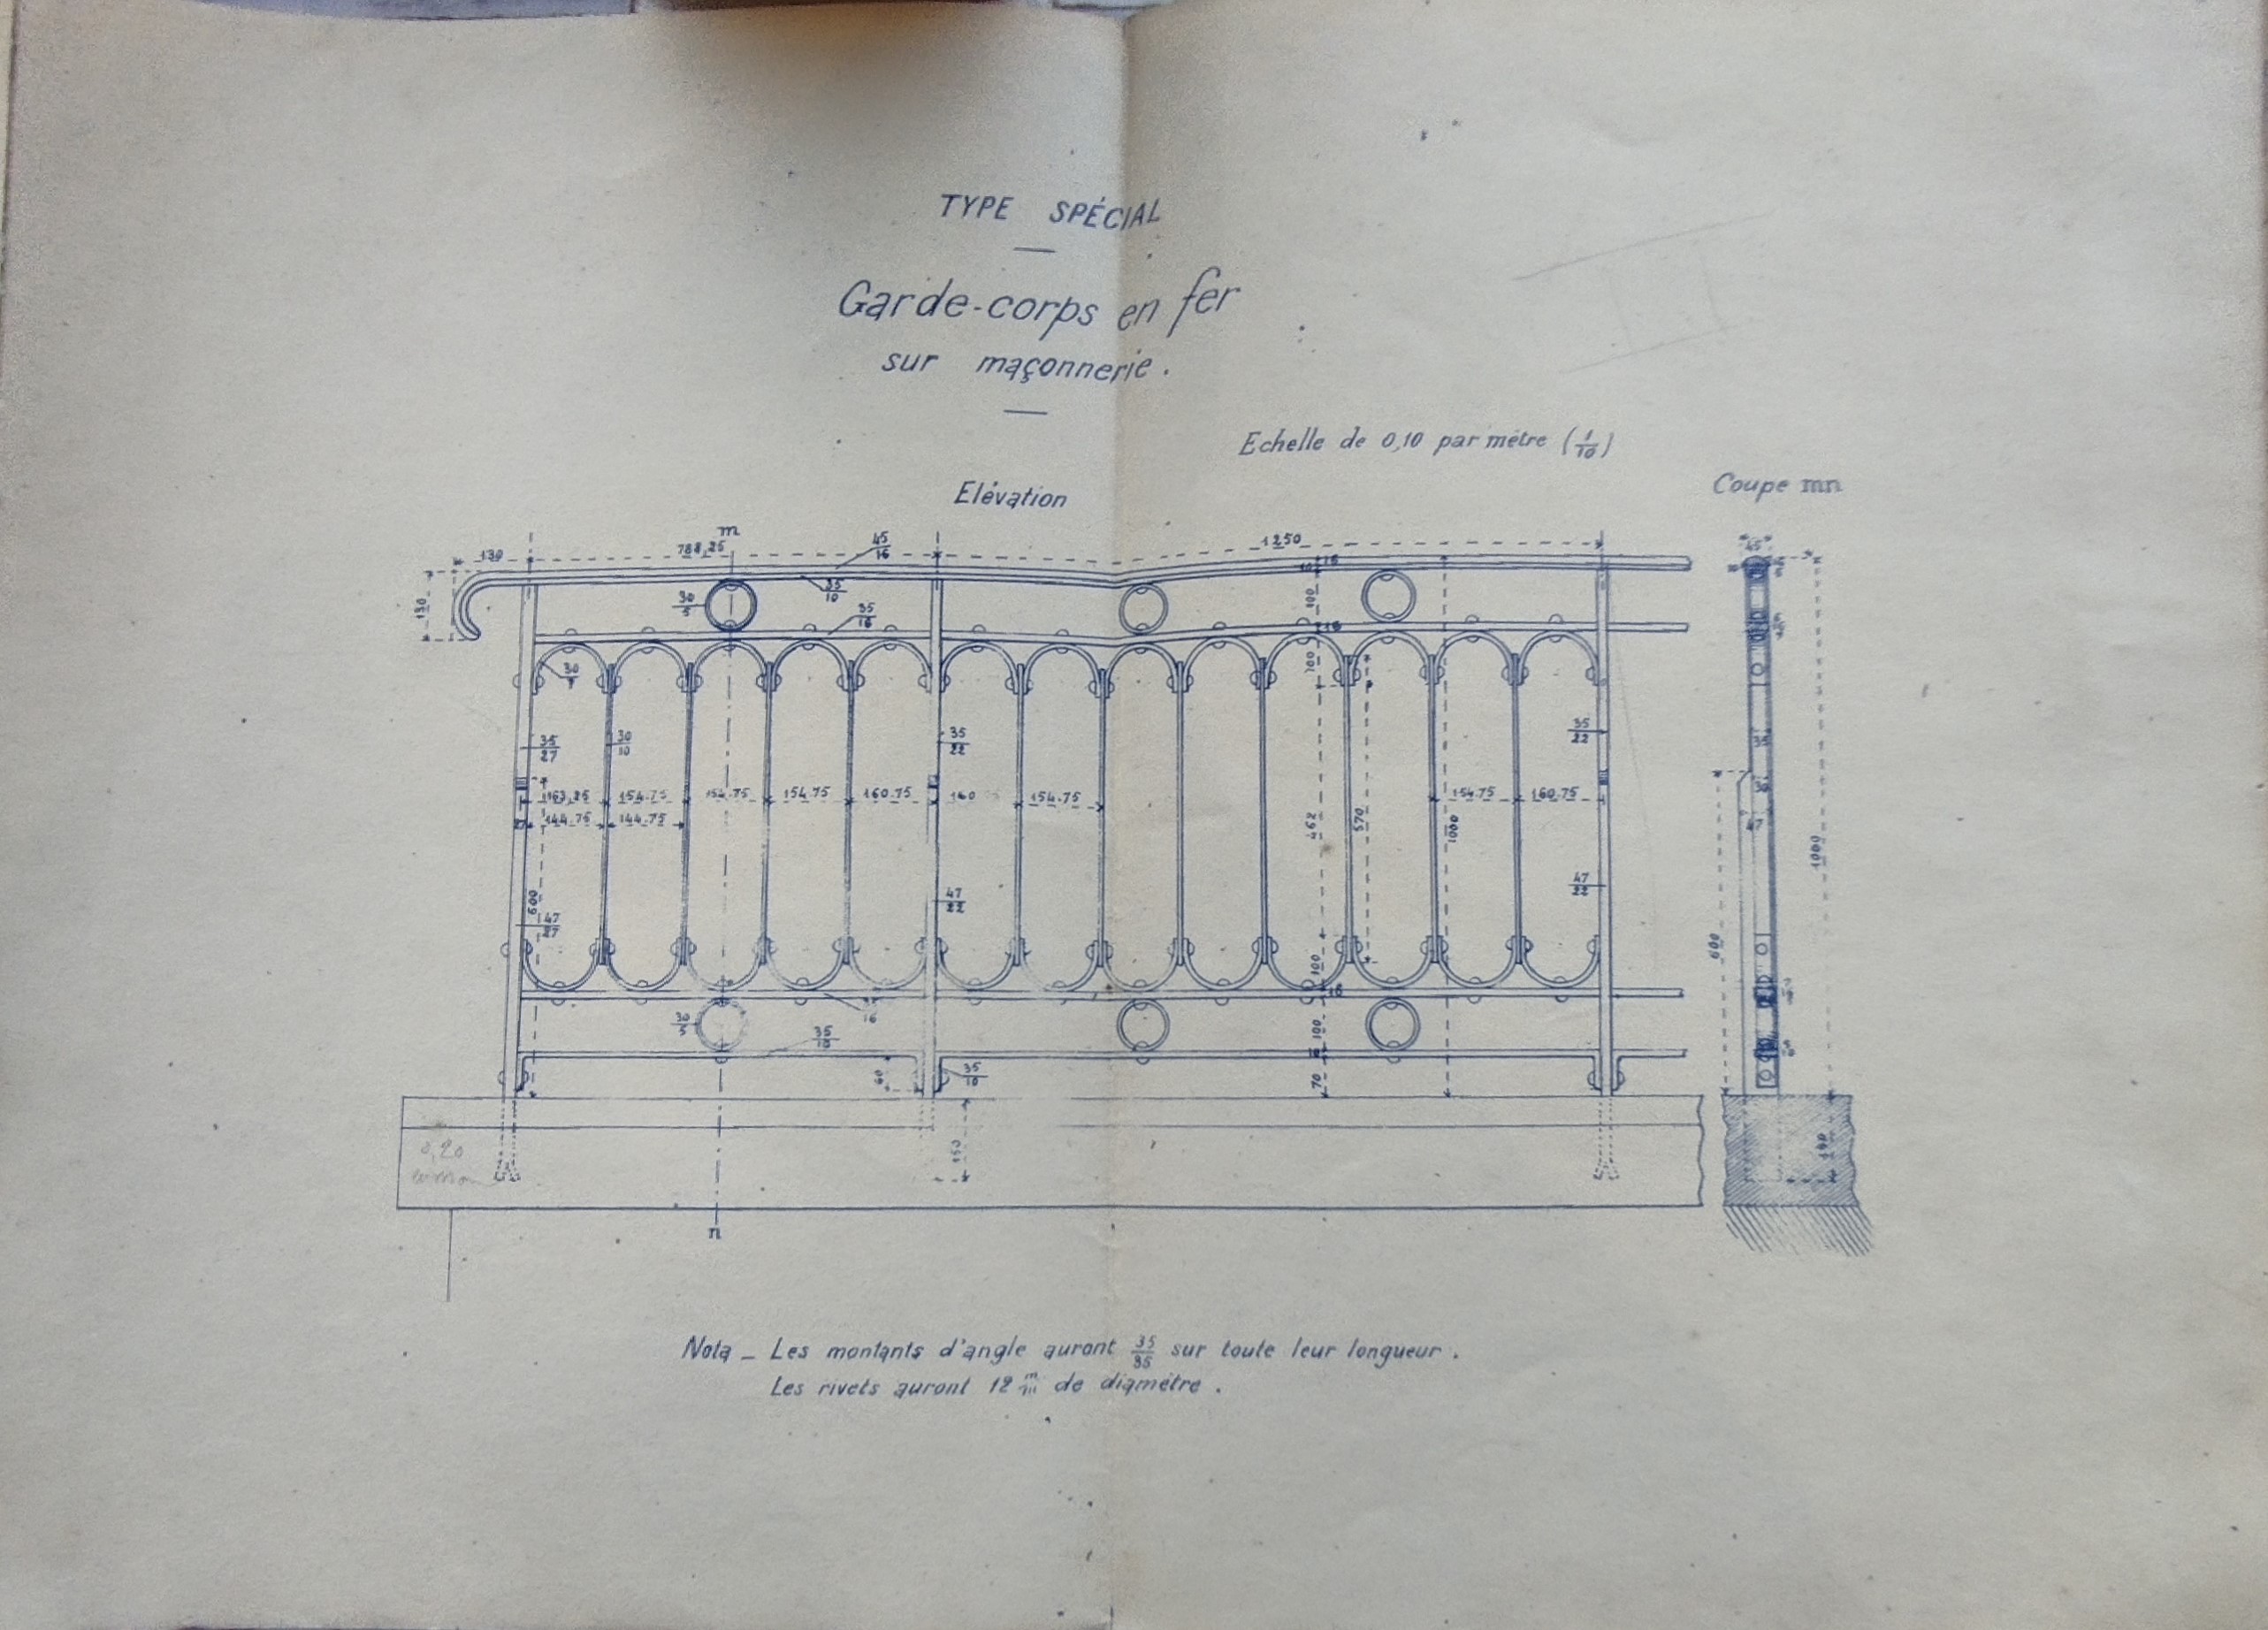 TYPE SPÉCIAL
Garde-corps en fer
sur maçonnerie.
Echelle de 0,10 par mètre (1/10)
Elévation
Coupe mn
m
130
788,25
45/16
1250
16
10
45
130
30/5
35/10
35/16
100
16
30
100
35/27
30/10
35/22
35/22
35
30
163,25
154.75
154.75
154.75
160.75
160
154.75
154.75
160.75
144.75
144.75
462
570
1000
47
1000
600
47/27
47/22
47/22
600
100
16
30/5
16
35/10
100
60
35/10
70
0,20
150
140
n
Nota - Les montants d'angle auront 35/35 sur toute leur longueur.
Les rivets auront 12 m/m de diamètre.